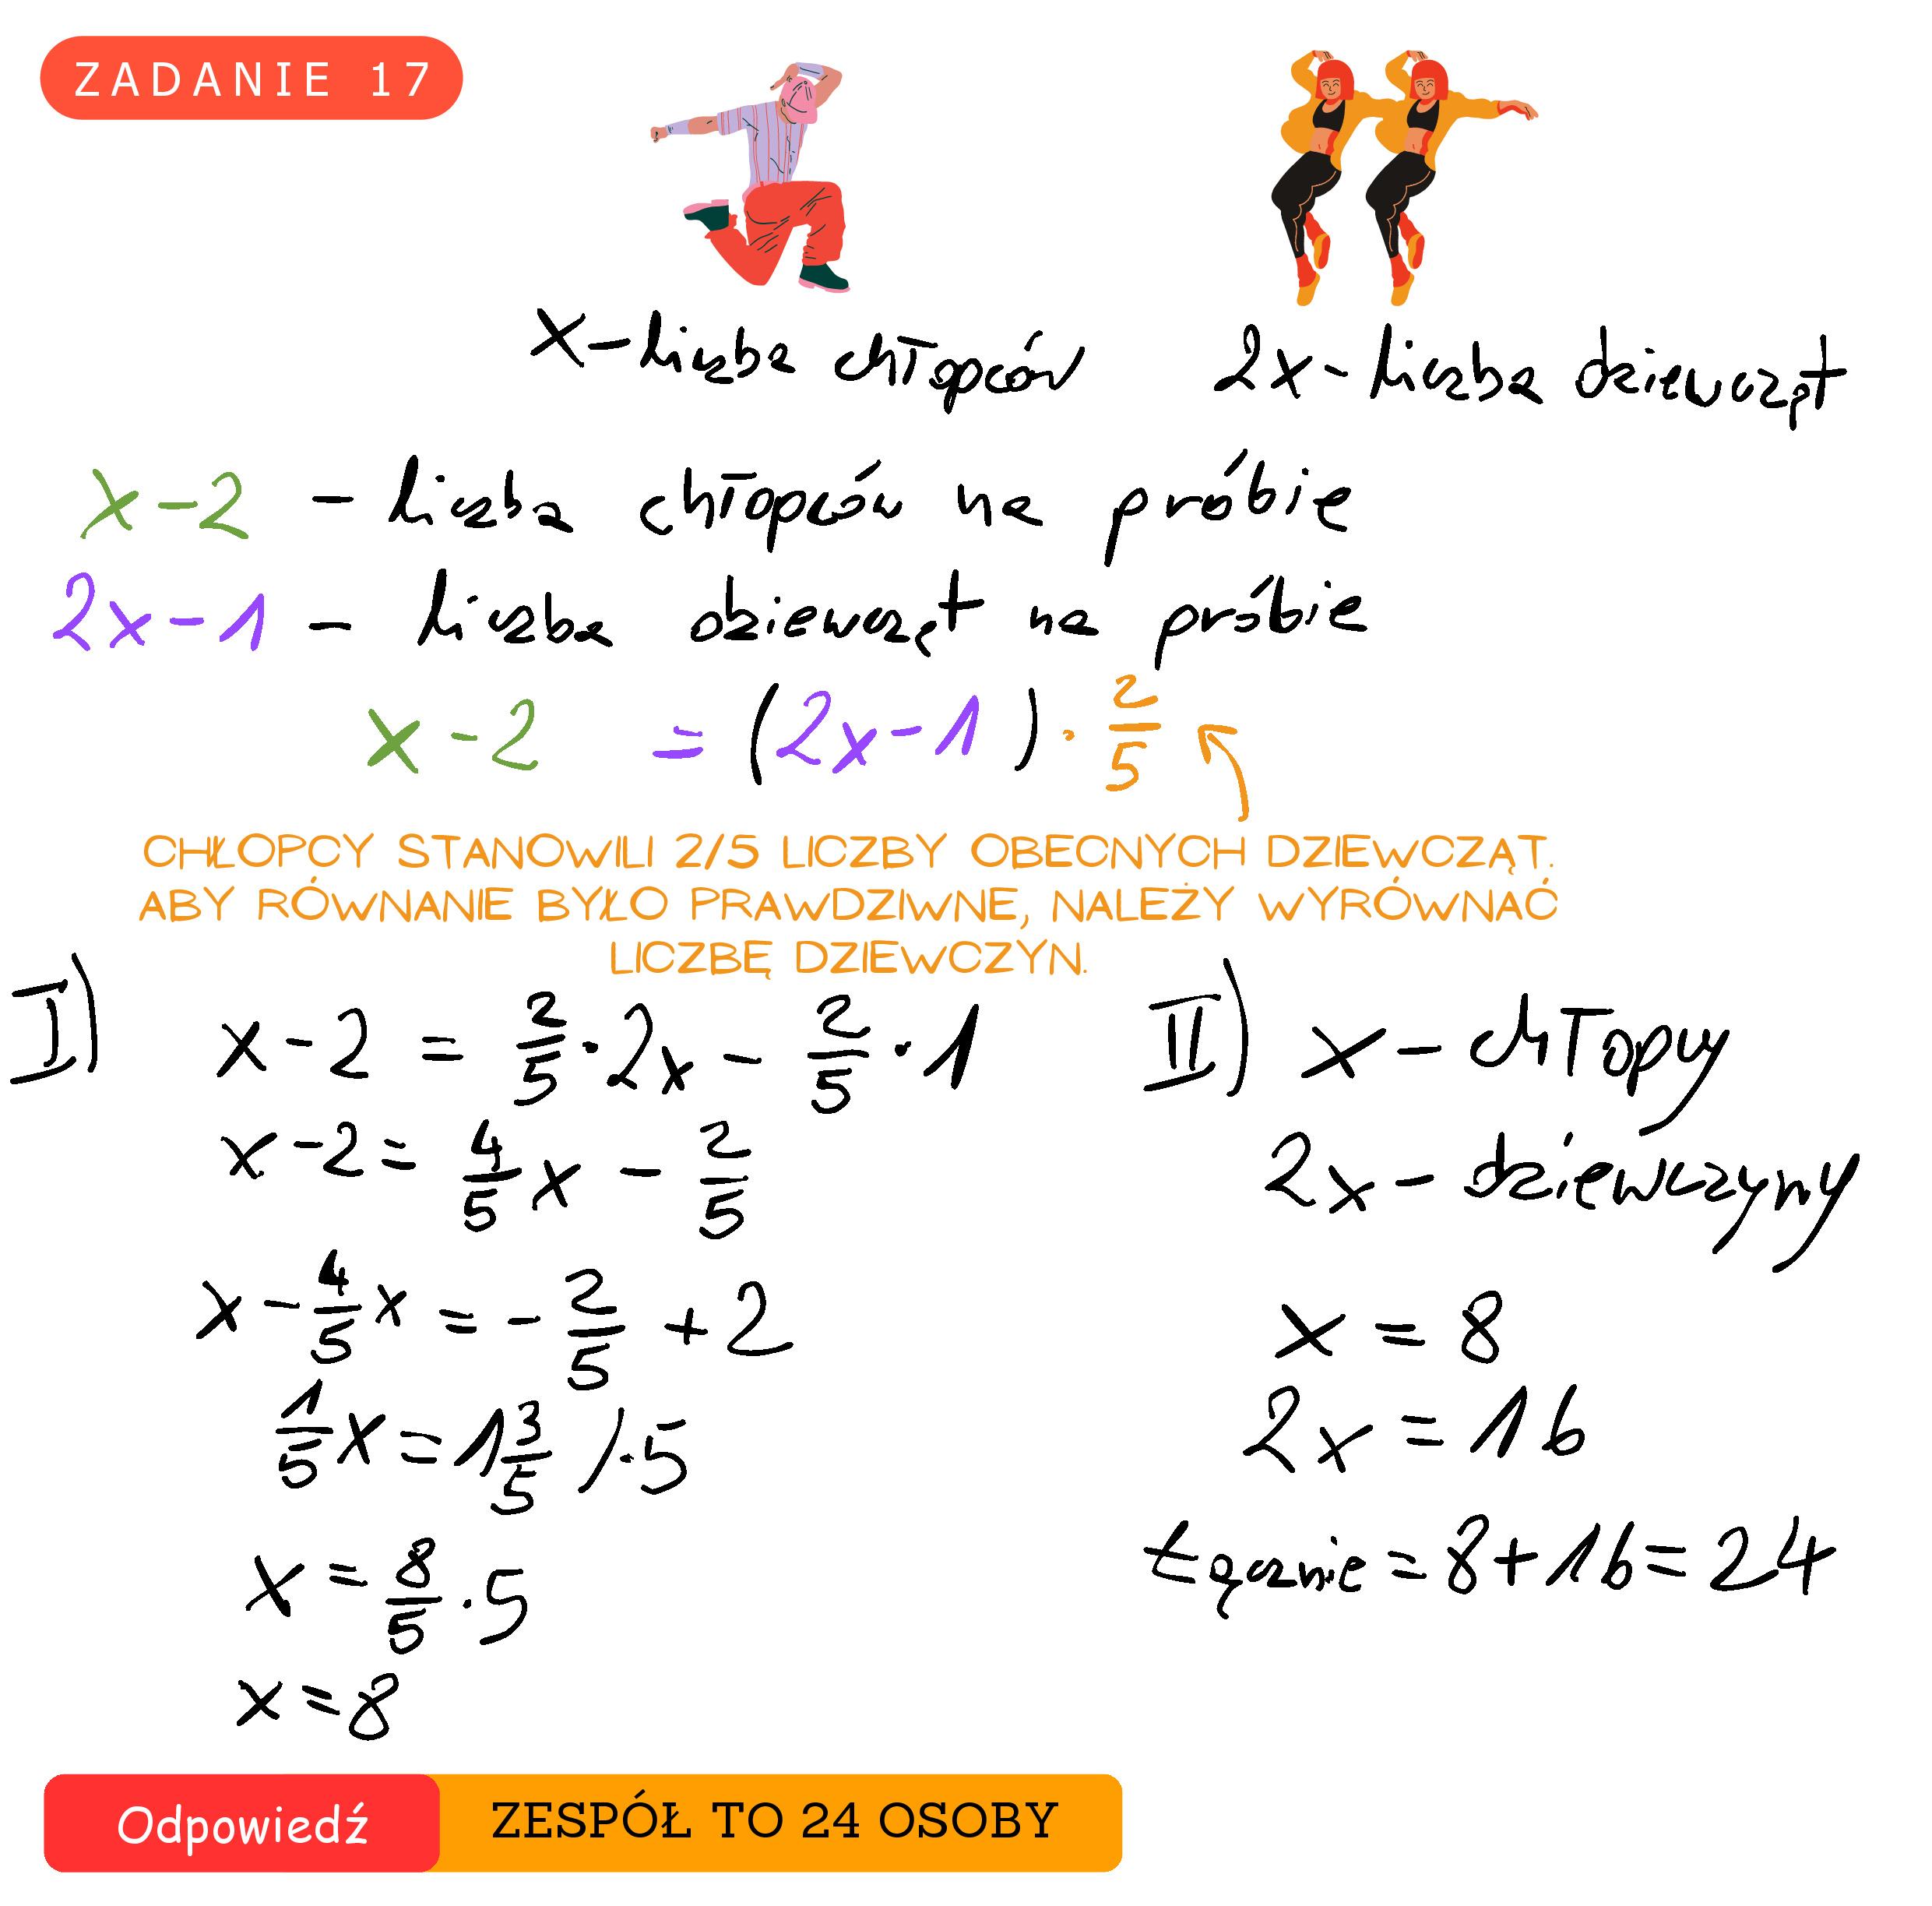 ZADANIE 17
x - liczba chłopców
2x - liczba dziewcząt
x - 2 - liczba chłopców na próbie
2x - 1 - liczba dziewcząt na próbie
x - 2 = (2x - 1) · 2/5
CHŁOPCY STANOWILI 2/5 LICZBY OBECNYCH DZIEWCZĄT.
ABY RÓWNANIE BYŁO PRAWDZIWNE, NALEŻY WYRÓWNAĆ
LICZBĘ DZIEWCZYN.
I)
x - 2 = 2/5 · 2x - 2/5 · 1
x - 2 = 4/5 x - 2/5
x - 4/5 x = - 2/5 + 2
1/5 x = 1 3/5 / · 5
x = 8/5 · 5
x = 8
II) x - chłopcy
2x - dziewczyny
x = 8
2x = 16
Łącznie = 8 + 16 = 24
Odpowiedź
ZESPÓŁ TO 24 OSOBY